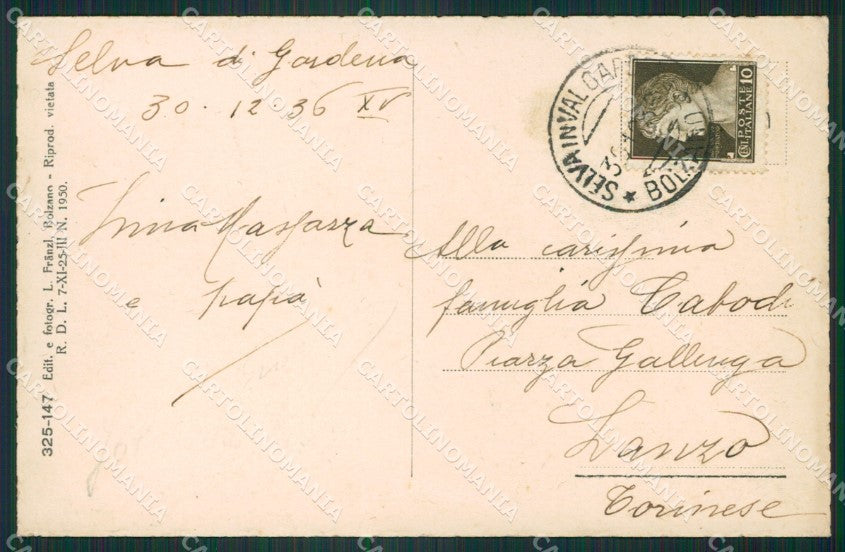 Selva di Gardena
30 - 12 36 XV
e papà
Alla carissima
famiglia Cabodi
Piazza Gallenga
Lanzo
Torinese
SELVA IN VAL GAR
BOLZANO
POSTE
ITALIANE
CENT. 10
325-147 Edit. e fotogr. L. Fränzl, Bolzano - Riprod. vietata
R. D. L. 7-XI-25-III N. 1950.
CARTOLINOMANIA